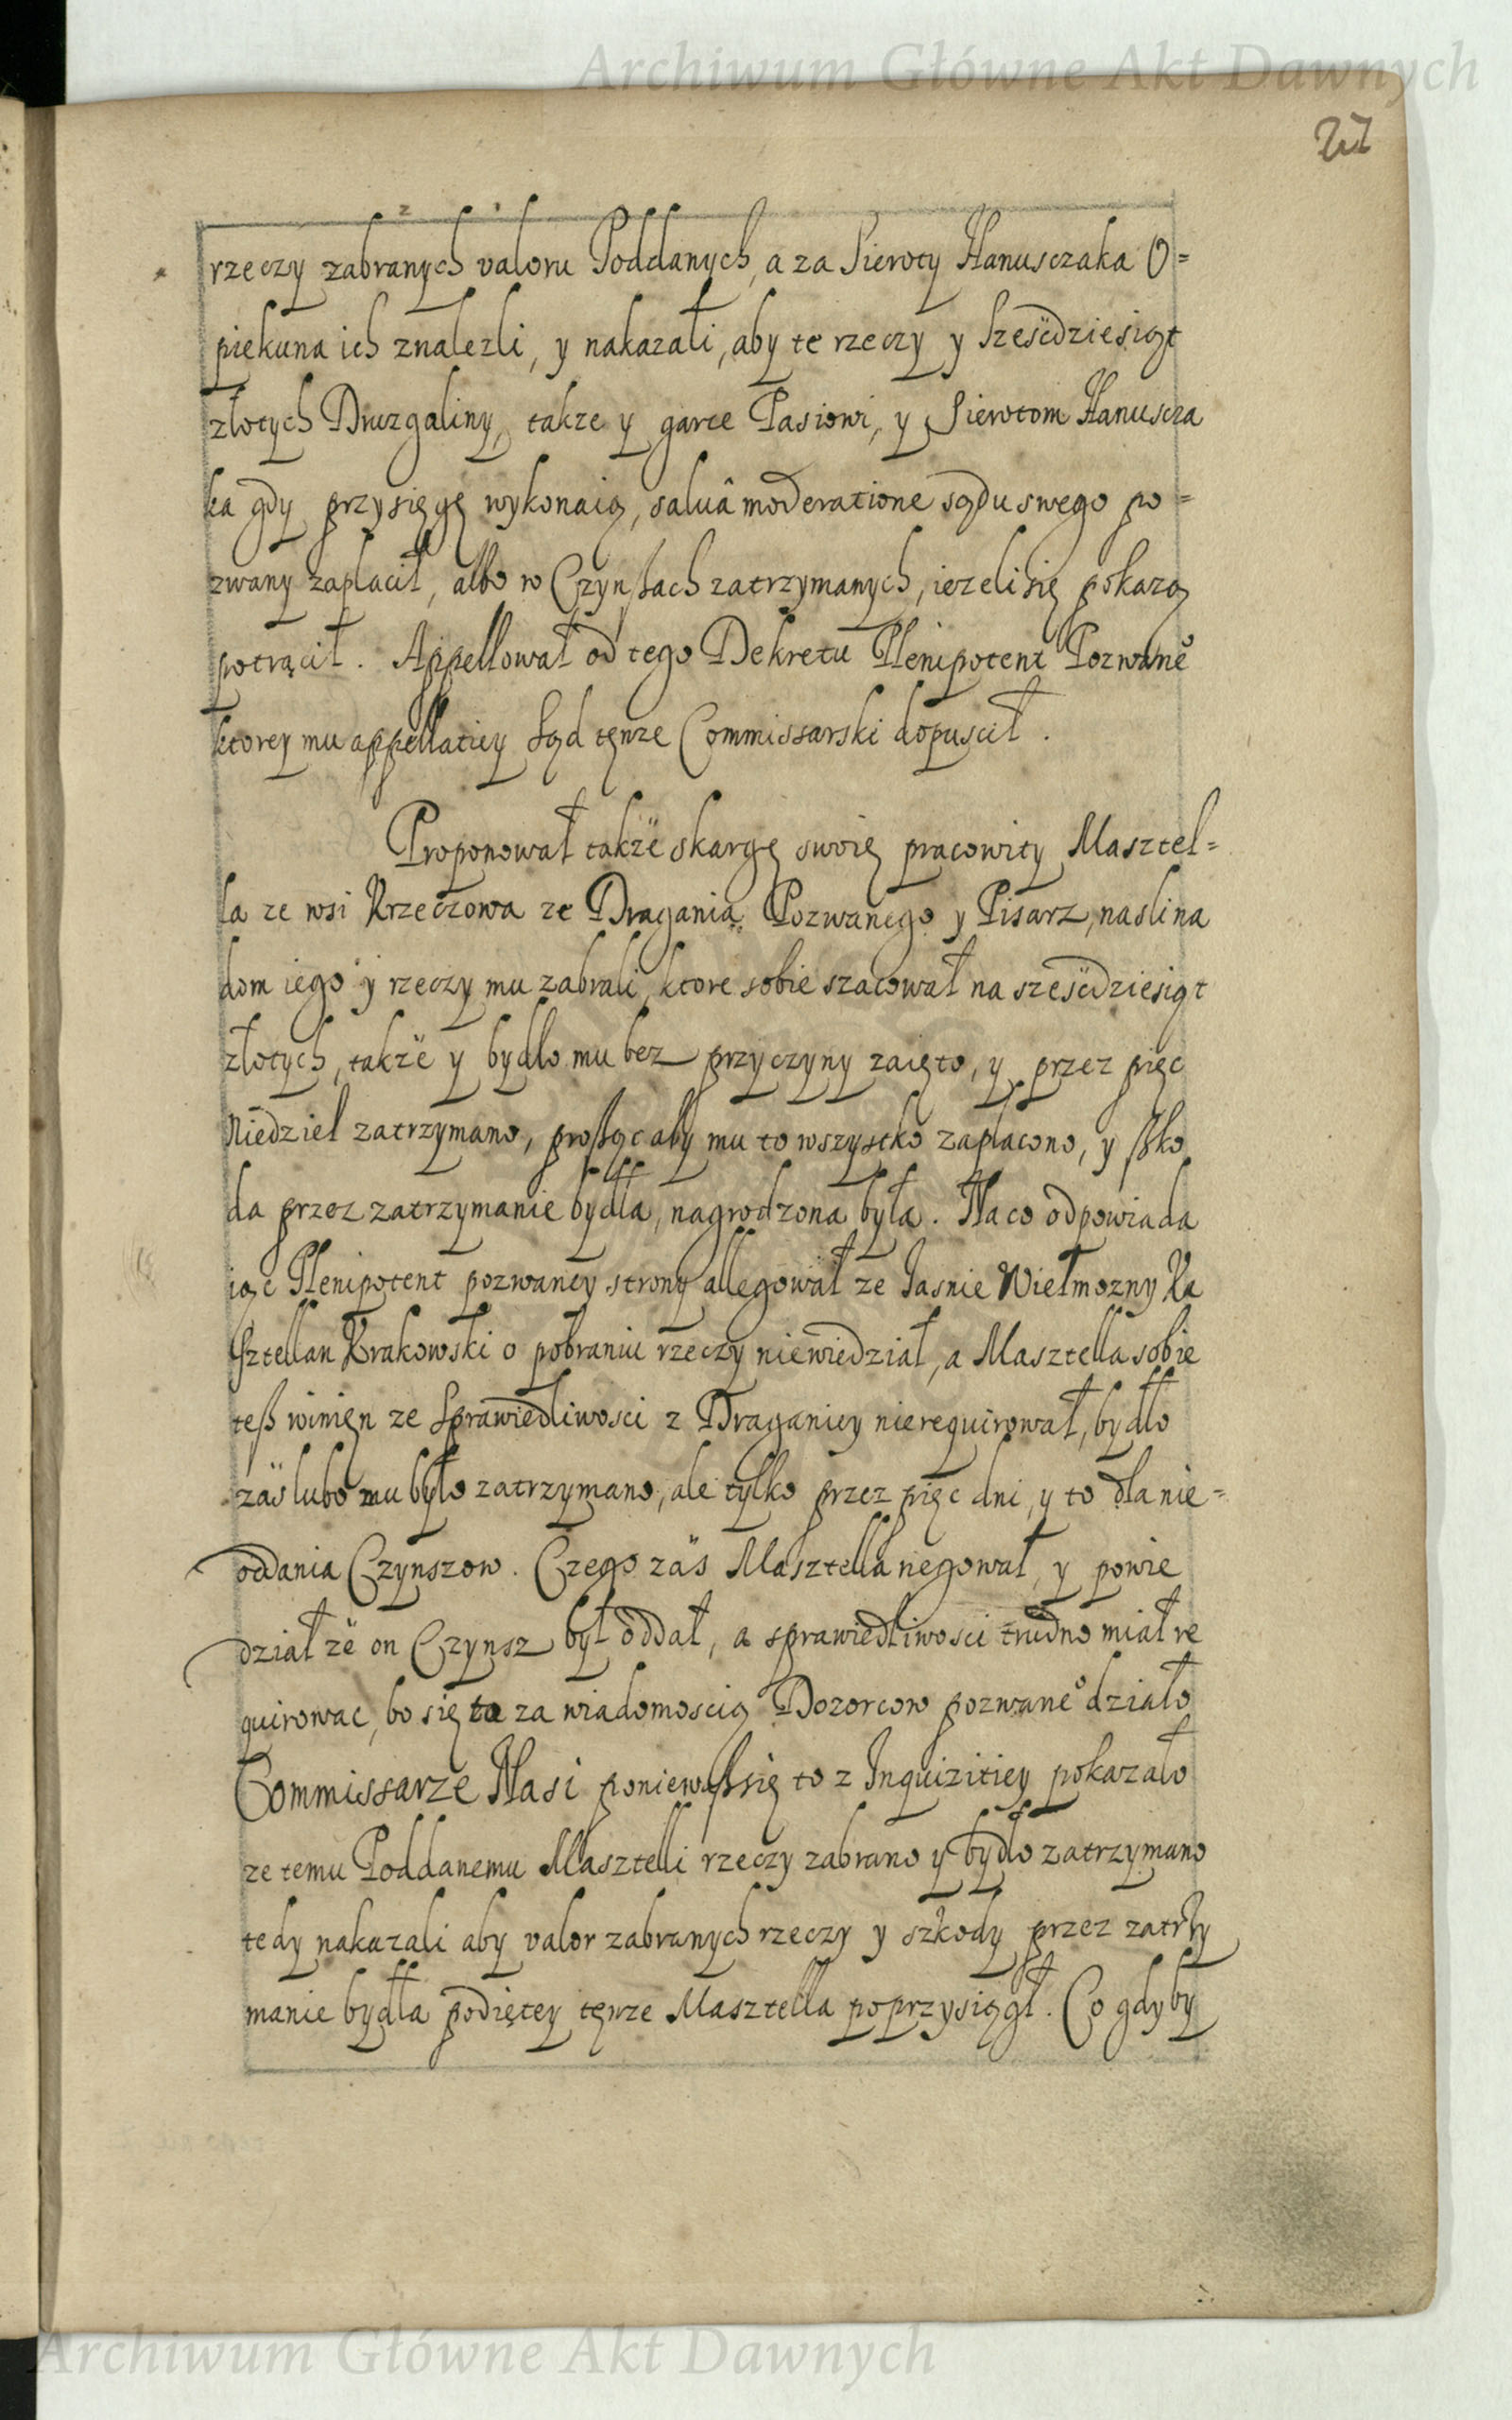 Archiwum Główne Akt Dawnych
rzeczy zabranych valoru Poddanych, a za Sieroty Hanusczaka O=
piekuna ich znalezli, y nakazali, aby te rzeczy y Sześćdziesiąt
złotych Druzgaliny, takze y garce Pasiowi, y Sierotom Hanuscza
ka gdy przysięgę wykonaią, salvâ moderatione sądu swego po=
zwany zapłacił, albo w Czynszach zatrzymanych, iezeli się pokazą
potrącił. Appellował od tego Dekretu Plenipotent Pozwane°
ktorey mu appellatiey Sąd tęnze Commissarski dopuscił.
Proponował takze skargę swoię pracowity Masztel=
la ze wsi Krzeczowa ze Dragania Pozwanego y Pisarz, naslina
dom iego y rzeczy mu zabrali, ktore sobie szacował na sześćdziesiąt
złotych, takze y bydło mu bez przyczyny zaięto, y przez pięc
Niedziel zatrzymano, prosząc aby mu to wszystko zapłacono, y szko
da przez zatrzymanie bydła, nagrodzona była. Na co odpowiada
iąc Plenipotent pozwaney strony allegował ze Jasnie Wielmozny Ka
sztellan Krakowski o pobraniu rzeczy niewiedział, a Masztella sobie
tesz winięn ze Sprawiedliwosci z Draganiey nierequirował, bydło
zas lubo mu było zatrzymano, ale tylko przez pięc dni, y to dla nie=
oddania Czynszow. Czego zas Masztella negował, y powie
dział ze on Czynsz był oddał, a sprawiedliwosci trudno miał re
quirowac, bo się to za wiadomoscią Dozorcow pozwane° działo
Commissarze Nasi poniewasz się to z Inquizitiey pokazało
ze temu Poddanemu Masztelli rzeczy zabrano y bydło zatrzymano
tedy nakazali aby valor zabranych rzeczy y szkody przez zatrzy
manie bydła podiętey tęnze Masztella poprzysiągł. Co gdyby
Archiwum Główne Akt Dawnych